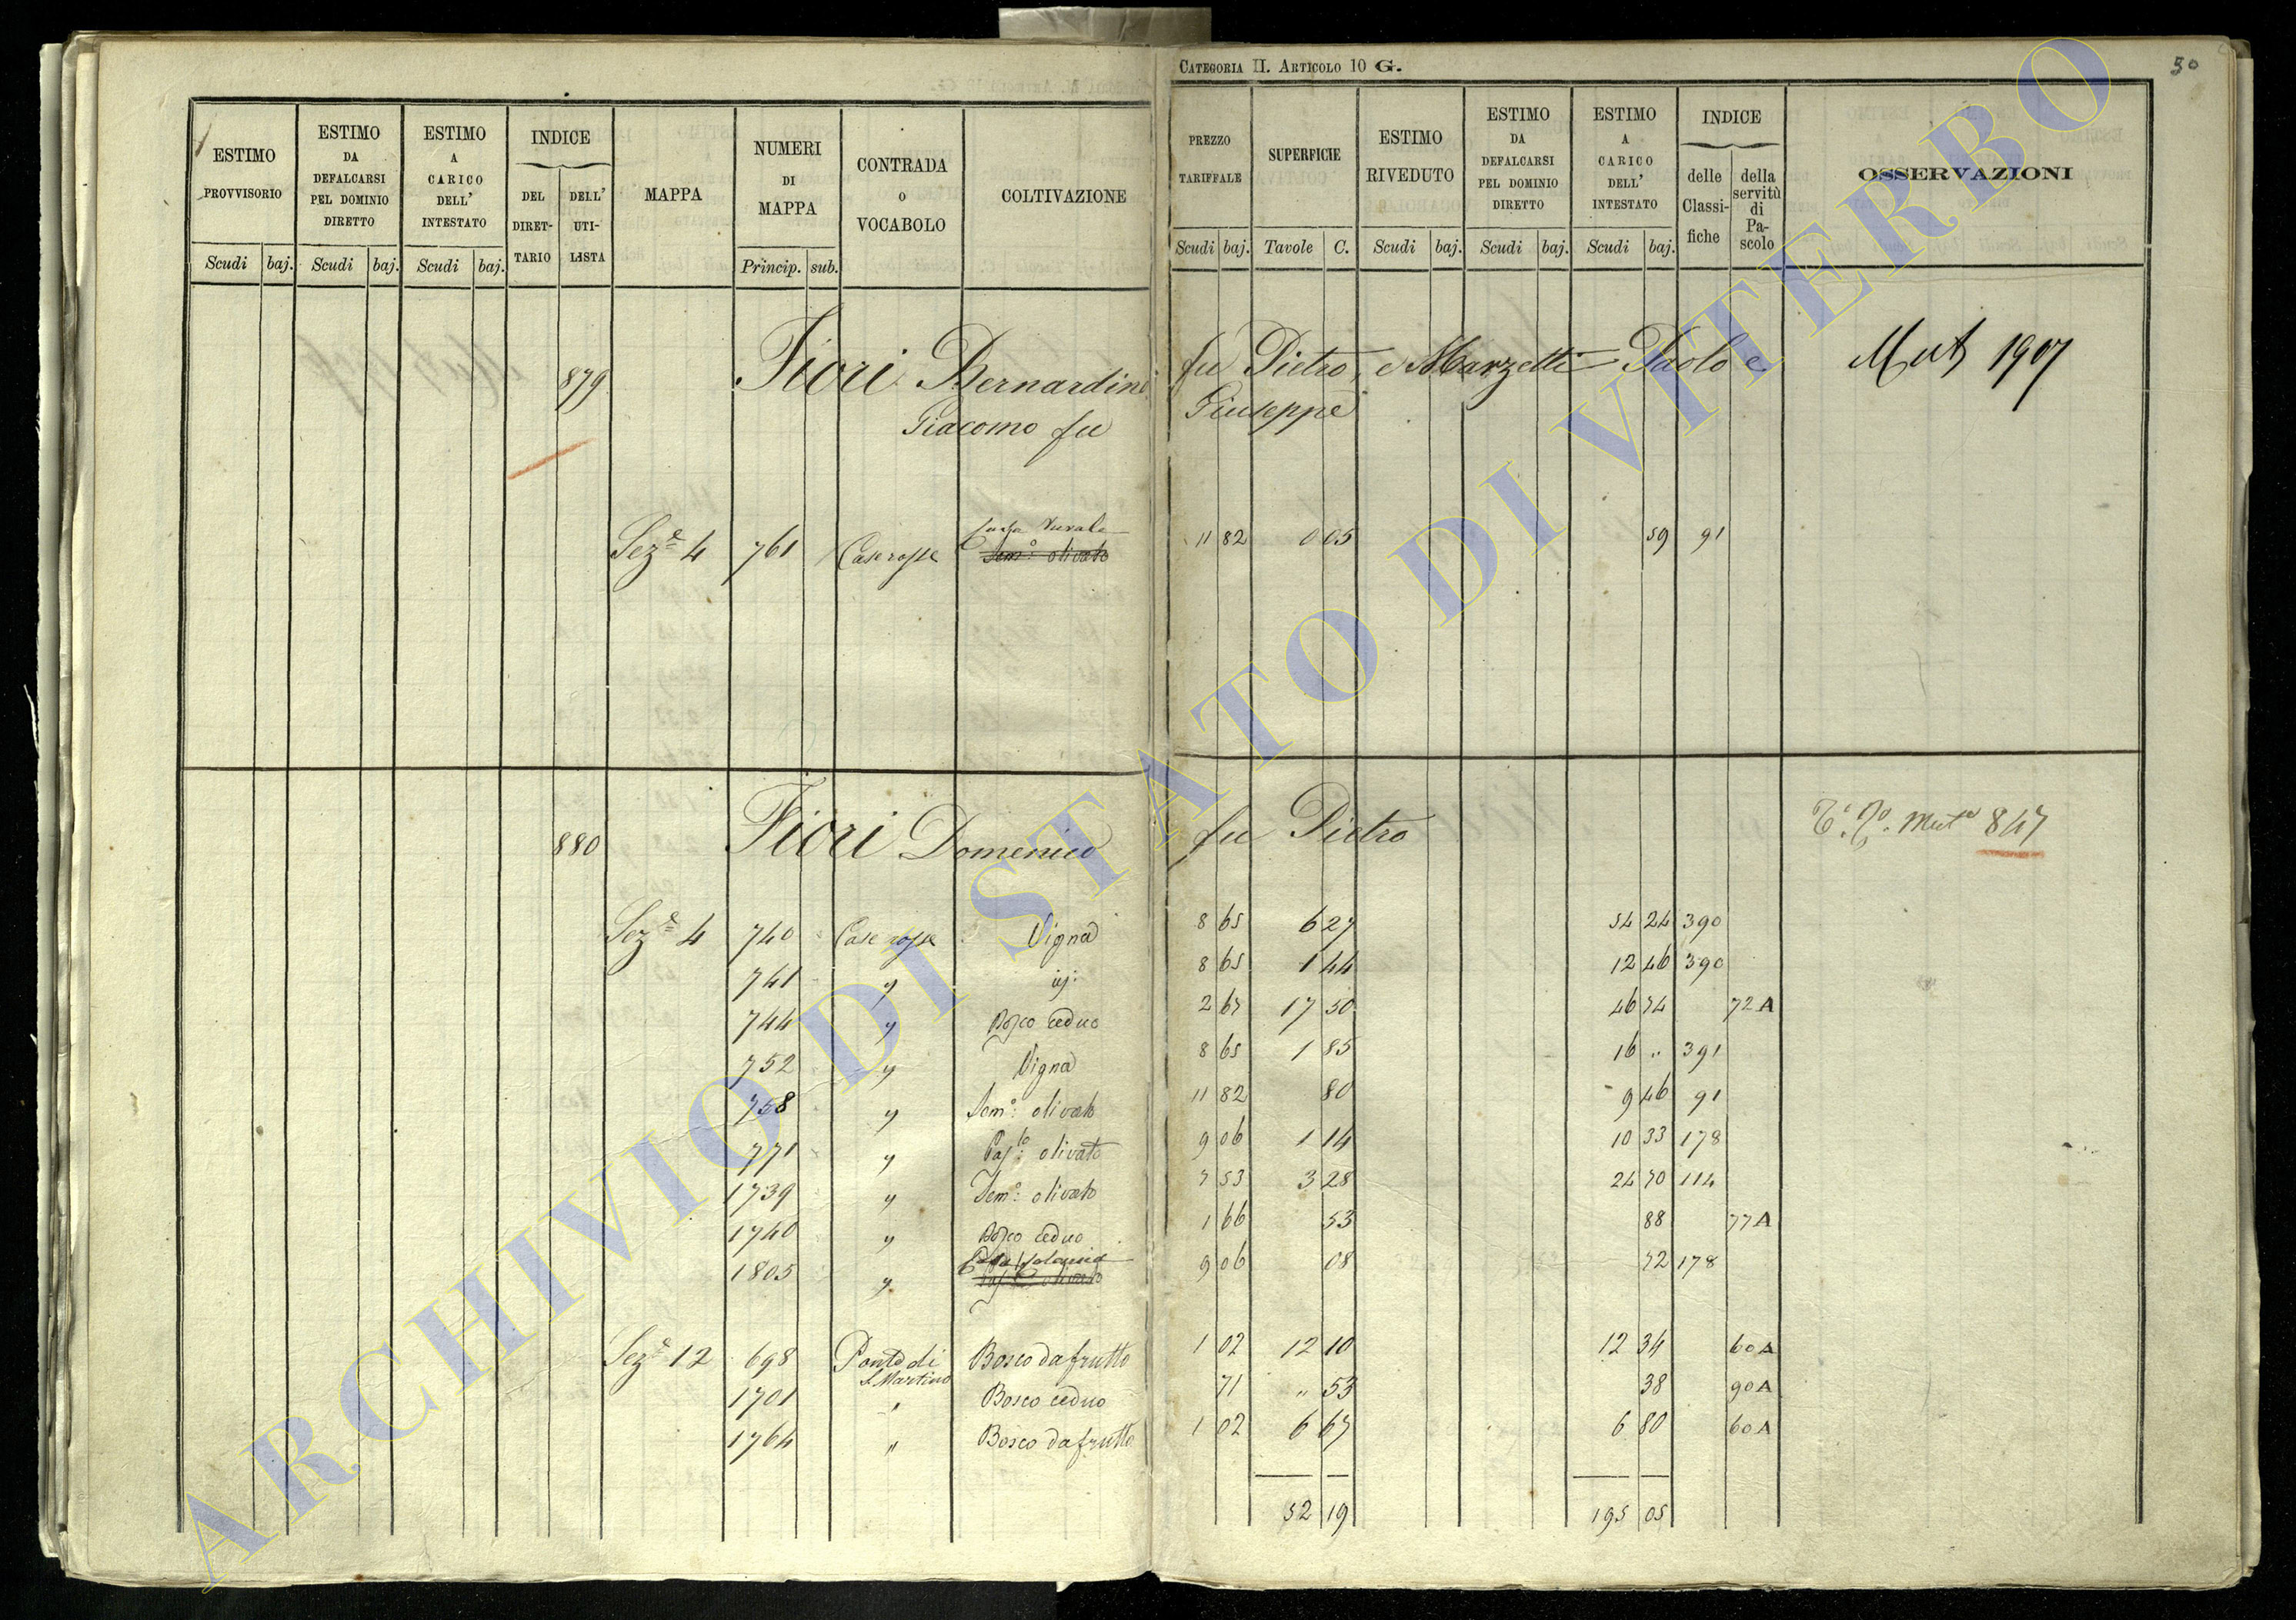 CATEGORIA II. ARTICOLO 10 G.
50
ESTIMO PROVVISORIO Scudi baj.
ESTIMO DA DEFALCARSI PEL DOMINIO DIRETTO Scudi baj.
ESTIMO A CARICO DELL' INTESTATO Scudi baj.
INDICE DEL DIRETTARIO DELL' UTILISTA
MAPPA
NUMERI DI MAPPA Princip. sub.
CONTRADA O VOCABOLO
COLTIVAZIONE
PREZZO TARIFFALE Scudi baj.
SUPERFICIE Tavole C.
ESTIMO RIVEDUTO Scudi baj.
ESTIMO DA DEFALCARSI PEL DOMINIO DIRETTO Scudi baj.
ESTIMO A CARICO DELL' INTESTATO Scudi baj.
INDICE delle Classifiche della servitù di Pascolo
OSSERVAZIONI
879 Fiori Bernardino fu Pietro, e Marzetti Paolo e Mut 1907
Giacomo fu Giuseppe
Sez.e 4 761 Case rosse Casa rurale 11 82 0 05 59 91
Sem.o olivato
880 Fiori Domenico fu Pietro Mut 847
Sez.e 4 740 Case rosse Vigna 8 65 6 27 54 24 390
741 " id. 8 65 1 44 12 46 390
744 " Bosco ceduo 2 67 17 50 46 74 72 A
752 " Vigna 8 65 1 85 16 " 391
758 " Sem.o olivato 11 82 80 9 46 91
771 " Pas.lo olivato 9 06 1 14 10 33 178
1739 " Sem.o olivato 7 53 3 28 24 70 114
1740 " Bosco ceduo 1 66 53 88 77 A
1805 " Casa colonica 9 06 08 72 178
olivato
Sez.e 12 698 Ponte di S. Martino Bosco da frutto 1 02 12 10 12 34 60 A
1701 " Bosco ceduo 71 " 53 38 90 A
1764 " Bosco da frutto 1 02 6 67 6 80 60 A
52 19 195 05
ARCHIVIO DI STATO DI VITERBO